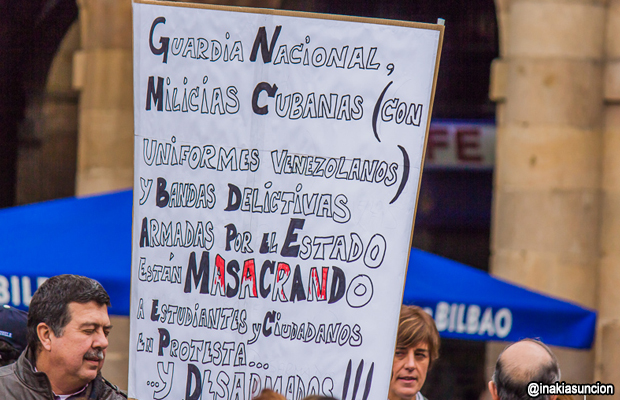 GUARDIA NACIONAL,
MILICIAS CUBANAS (CON
UNIFORMES VENEZOLANOS)
Y BANDAS DELICTIVAS
ARMADAS POR EL ESTADO
ESTÁN MASACRANDO
A ESTUDIANTES Y CIUDADANOS
EN PROTESTA...
...Y DESARMADOS!!!
FE
BILBAO
BILBAO
@inakiasuncion